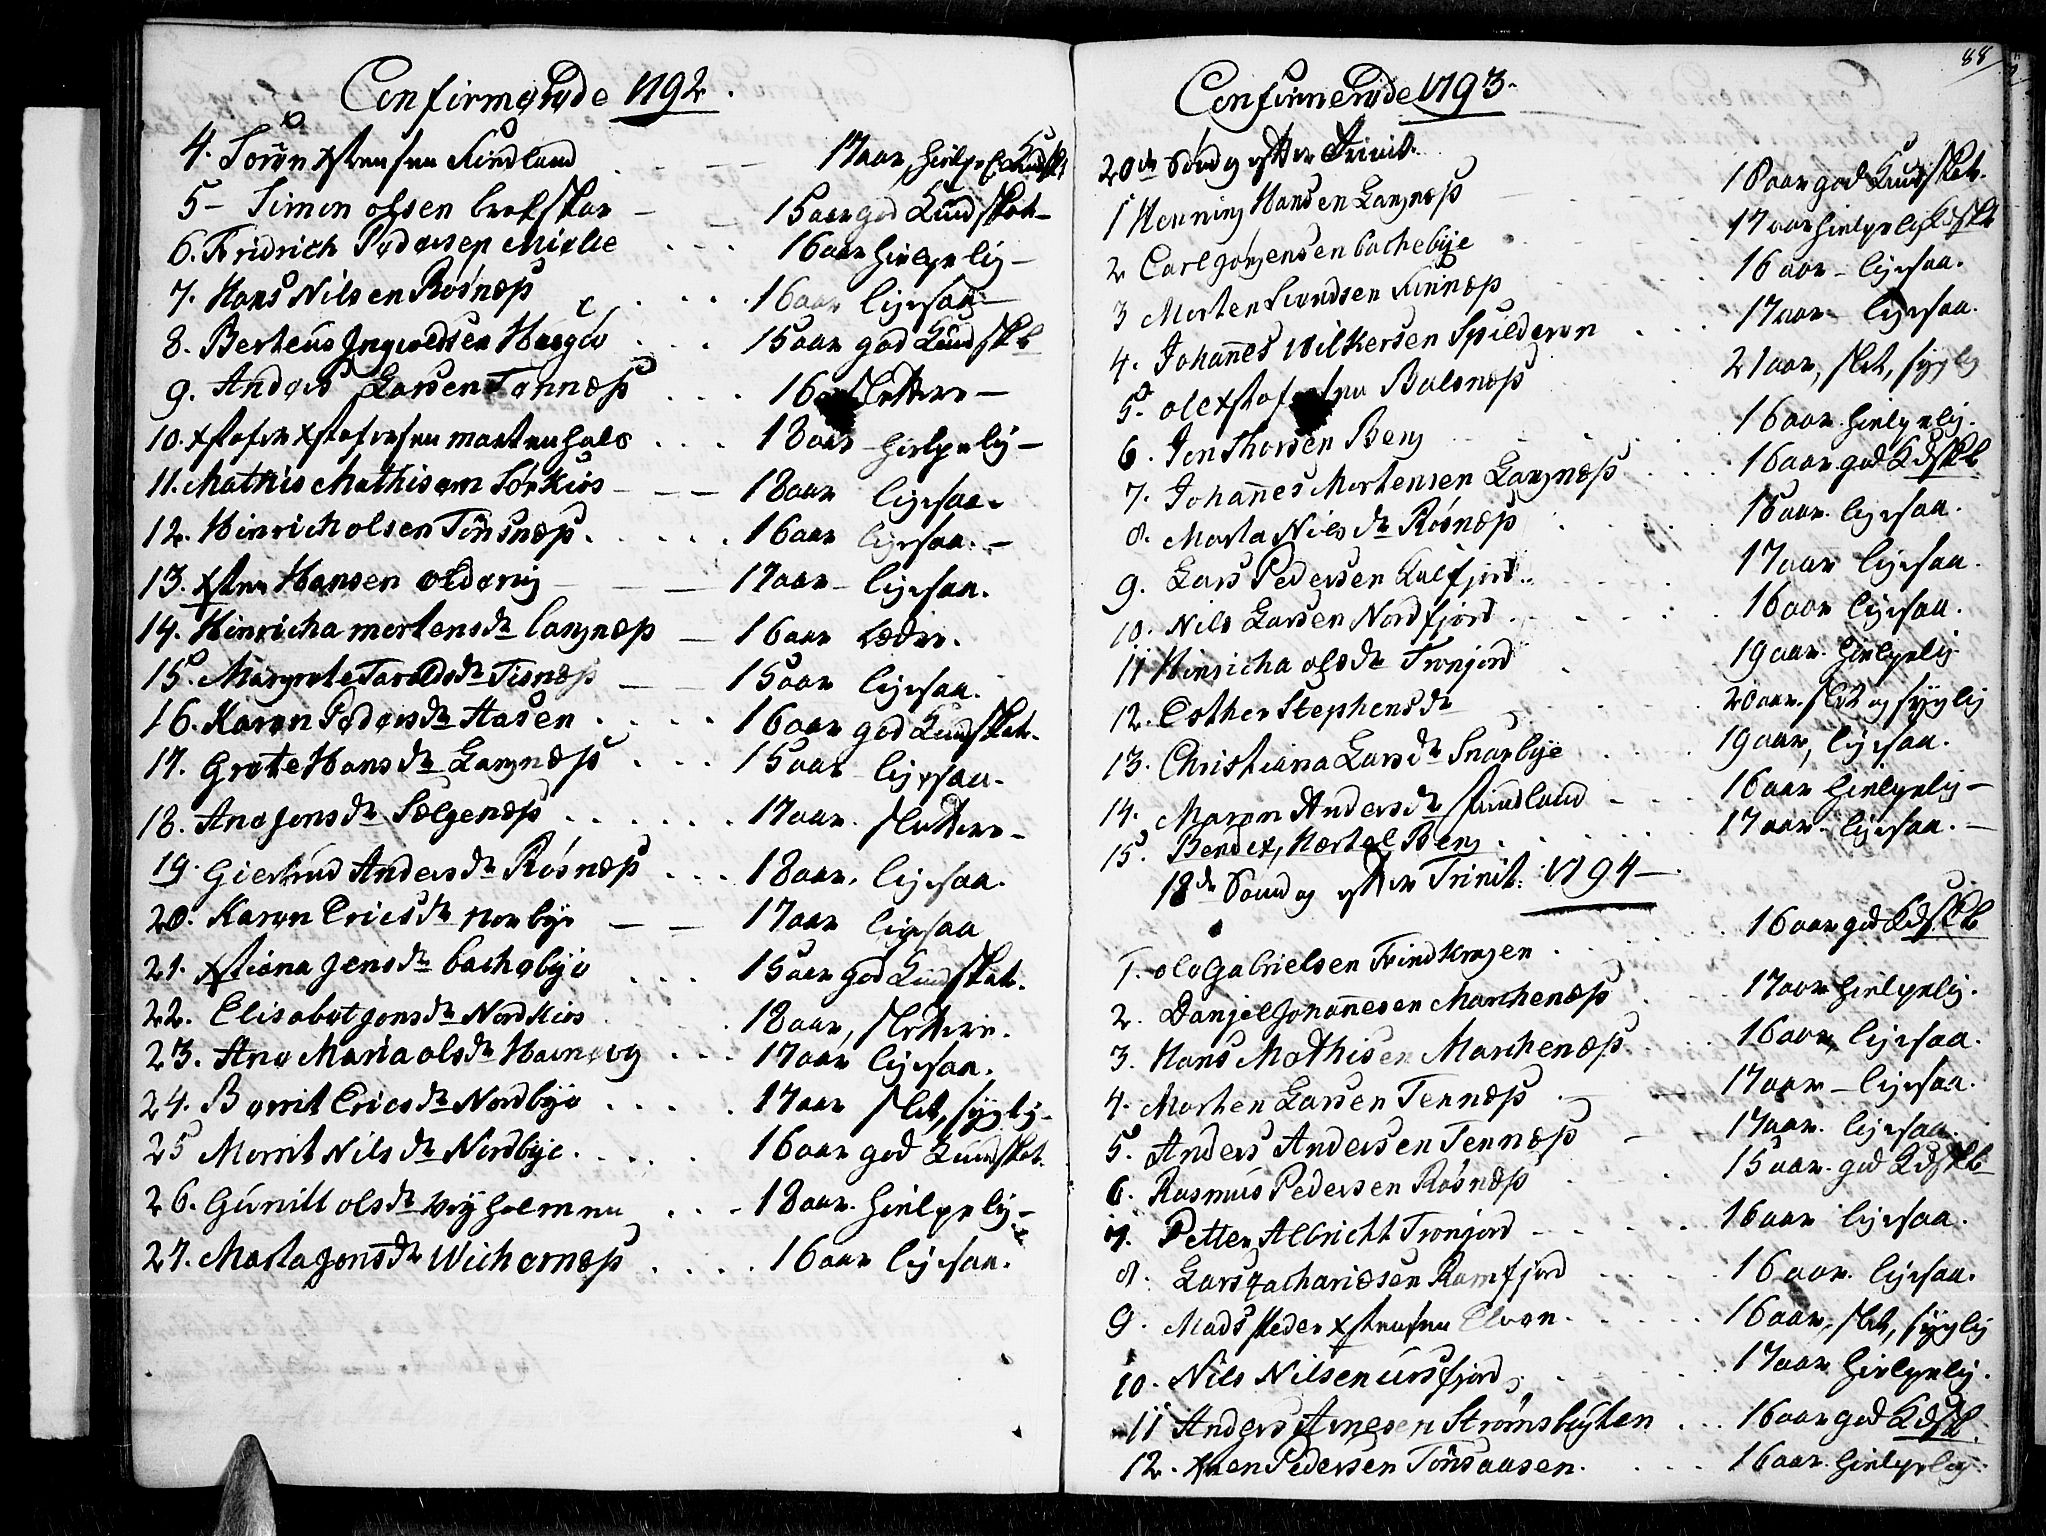 Confirmerede 1792.
4. Sørøn Xstensen Sindland - - - 17 aar, hielpel. Kundsk.
5 - Simon Olsen brekskar - 15 aar god Kundskab -
6. Fridrich Pedersen Mielle . . . 16 aar hielpelig -
7. Hans Nilsen Rösnæss . . . . 16 aar ligesaa -
8. Berteus Ingvoldsen . . . 15 aar god Kundskb
9. Anders Larsen Tønnæss . . . 16 slettere -
10. Xstofer Xstofersen Mortenhals . . . 18 aar hielpelig -
11. Mathis Mathisen Sørkios - - - 18 aar ligesaa.
12. Hinrich Olsen Tönsnæss . . . . . 16 aar ligesaa. -
13. Xsten Hansen Oldervig - - - 17 aar - ligesaa.
14. Hinricha Mortensdr Langnæss - 16 aar bedre.
15. Margrete Taraldsdr Tisnæss - - 15 aar ligesaa.
16. Karen Pedersdr Stasen . . . . 16 aar god Kundskab.
17. Grete Hansdr Langnæss . . . 15 aar ligesaa.
18. Ane Jonsdr Selgenæss . . . . . . 17 aar. slettere -
19. Giertrud Andersdr Rösnæss . . . 18 aar. ligesaa.
20. Karen Ericsdr Norbye - - 17 aar ligesaa
21. Xstiana Jensdr bachebye . . . 15 aar god Kundskab.
22. Elisabet Jonsdr Nordkios . . . . 18 aar, slettere.
23. Ane Maria Olsdr . . . 17 aar ligesaa.
24. Berrit Ericsdr Nordbye . . . . . 17 aar slet, sygelig -
25 Marrit Nilsdr Nordbye . . . . . 16 aar god Kundskab.
26. Gunill Olsdr Vejholmen . . . 18 aar. hielpelig -
27. Marta Jonsdr Wichernæss . . . . 16 aar ligesaa.
88
Confirmerede 1793.
20de Søndg efter Trinit.
1 Henning Hansen Langnæss - - 18 aar god Kundskab.
2 Carl Jørgensen bachebye . . . 17 aar hielpelig Kdskb
3 Morten Svendsen Finnæss . . . 16 aar - ligesaa.
4. Johannes Wilkersen Spilderen . . . 17 aar - ligesaa.
5. Ole Xstofersen Balsnæss . 21 aar, slet, sygelig
6. Jon Thorsen Berg . . . . 16 aar hielpelig.
7. Johannes Mortensen Langnæss . . . 16 aar god Kdskb
8. Marta Nilsdr Rösnæss . . . . 18 aar. ligesaa.
9. Lars Pedersen Kalfjord . . . . 17 aar ligesaa.
10. Nils Larsen Nordfjord . . . . . 16 aar ligesaa.
11 Hinricha Olsdr Tronjord . 19 aar. hielpelig
12. Esther Stephensdr . . . . 20 aar. slet og sygelig
13. Christiana Larsdr Snarbye . . . 19 aar, ligesaa.
14. Maren Andersdr Sindland - . . 16 aar hielpelig -
15. Bendix, Hertel Berg . . . . . 17 aar. ligesaa. -
18de Søndag efter Trinit: 1794 -
1. Ole Gabrielsen Trindkragen . . . . . 16 aar god Kdskb
2. Daniel Johannesen Marchenæss . . . 17 aar hielpelig.
3. Hans Mathisen Marchenæss . . . 16 aar, ligesaa.
4. Morten Larsen Tennæss . - 17 aar - ligesaa.
5. Anders Andersen Tennæss - 17 aar. ligesaa.
6. Rasmus Pedersen Rösnæss . . . 15 aar. god Kdskb
7. Petter Albricht Tronjord - - - - 16 aar ligesaa.
8. Lars Zachariæsen Ramfjord . . . . 16 aar. ligesaa.
9. Mads Peder Xstensen Elven . . . . . 16 aar, slet, sygelig
10. Nils Nilsen Ursfjord . . . . . 17 aar hielpelig.
11 Anders Arnesen Strømsbugten . . . 16 aar god Kdskb.
12. Xsten Pedersen Tönsaasen . . . . 16 aar. hielpelig.